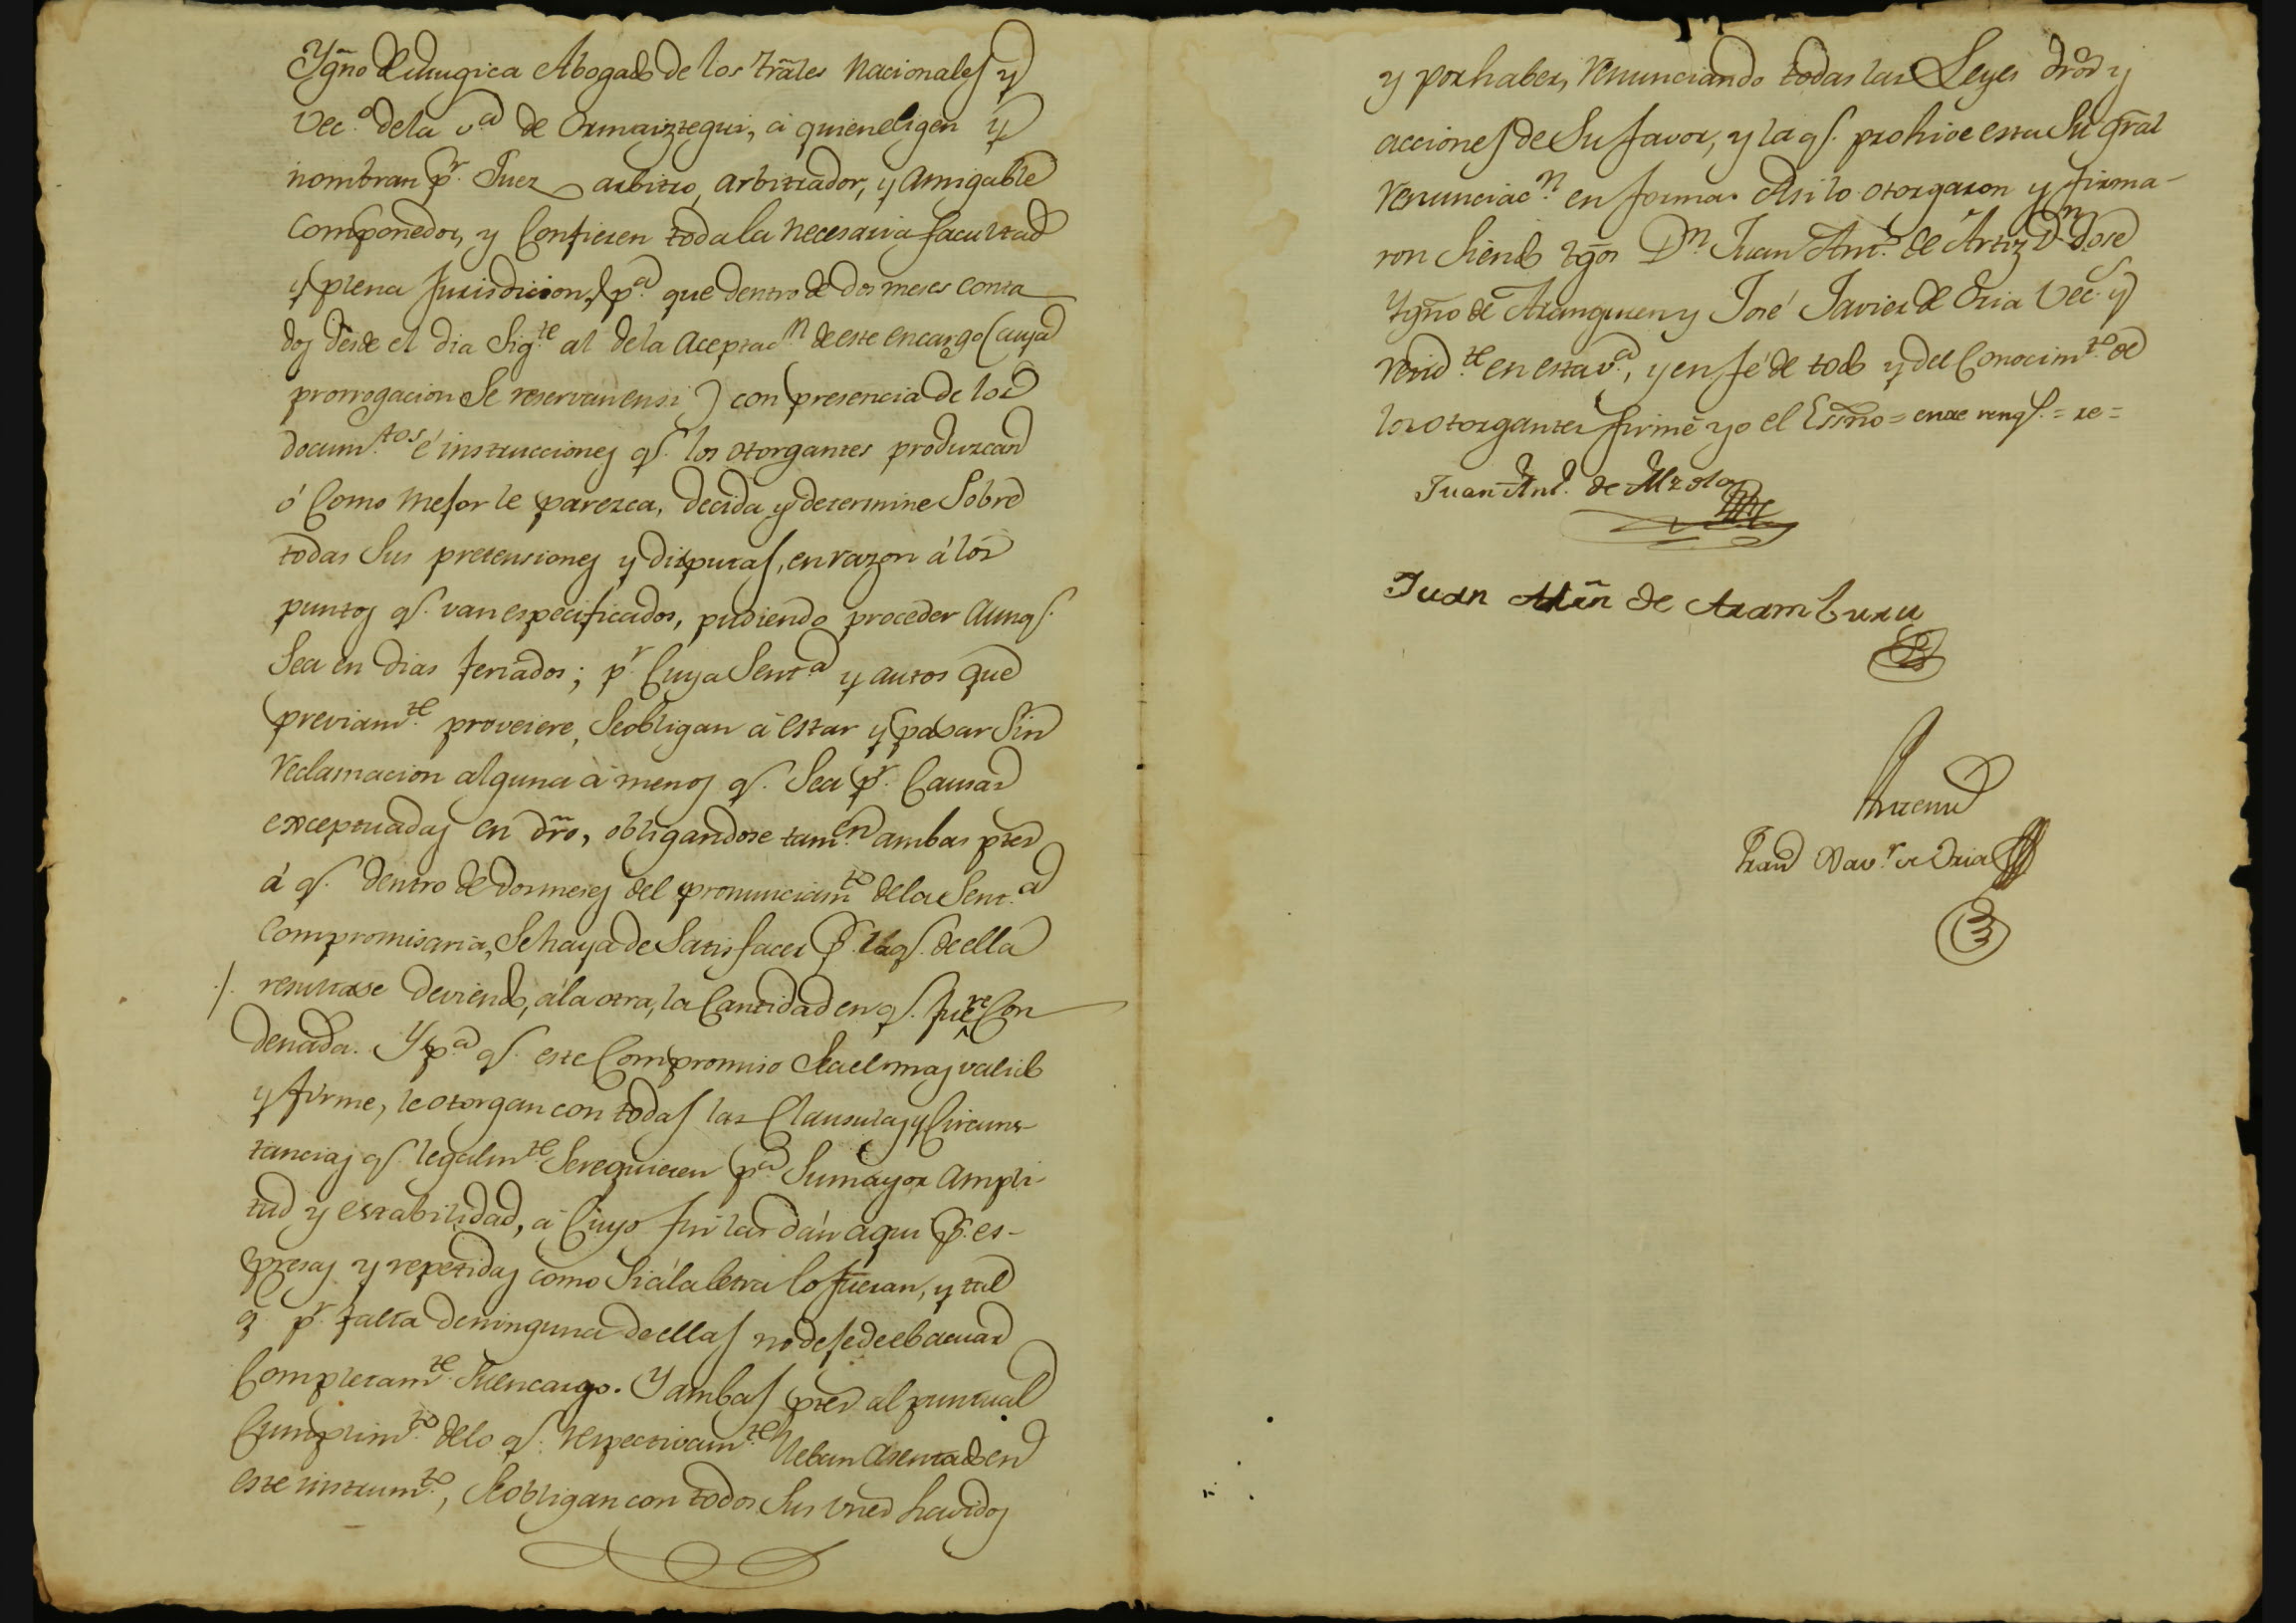 Ygño de Mugica Abogado de los trãles Nacionales y
Vec.º de la v.ª de Ormaiztegui, á quien eligen y
nombran p.r Juez arbitro, arbitrador, y amigable
componedor, y Confieren toda la necesaria facultad
y plena Jurisdicion, p.ª que dentro de dos meses conta
dos desde el dia Sig.te al de la aceptac.n de este encargo (cuya
prorrogacion Se reservan en si) con presencia de los
docum.tos é instrucciones q.e los otorgantes produzcan
ó Como Mejor le parezca, decida y determine Sobre
todas Sus pretensiones y disputas, en razon á los
puntos q.e van especificados, pudiendo proceder aunq.e
Sea en dias feriados; p.r Cuya Sent.ª y autos que
previam.te proveiere, Se obligan á estar y pasar Sin
reclamacion alguna á menos q.e Sea p.r Causas
exceptuadas en dr̃o, obligandose tam.en ambas ptes
á q.e dentro de dos meses del pronunciam.to de la Sent.ª
Compromisaria, Se haya de Satisfacer p.r la q.e de ella
./. resultase deviendo, á la otra, la Cantidad en q.e fuere Con
denada. Y p.ª q.e este Compromiso Sea el mas valido
y firme, le otorgan con todas las Clausulas y Circuns-
tancias q.e legalm.te Se requieren p.ª Su mayor ampli-
tud y estabilidad, á Cuyo fin las dán aqui p.r es-
presas y repetidas como Si á la letra lo fueran, y tal
q.e p.r falta de ninguna de ellas no deje de ebacuar
Completam.te Su encargo. Y ambas ptes al puntual
Cumplim.to de lo q.e respectivam.te lleban asentado en
este instrum.to, Se obligan con todos Sus vnes havidos
y por haber, renunciando todas las Leyes dr̃os y
acciones de Su favor, y la q.e prohive esta Su gr̃al
renunciac.n en forma. Asi lo otorgaron y firma-
ron Siendo tg̃os D.n Juan Ant.º de Artiz D.n Jose
Ygño de Aranguren y José Javier de Oria Vec.s y
resid.te en esta v.ª, y en fé de todo y del Conocim.to de
los otorgantes firmé yo el Essño = entre reng.s = re =
Juan Ant.º de Alzola
Juan Mr̃n de Aramburu
Antemi
Fran.co Xav.r de Oria